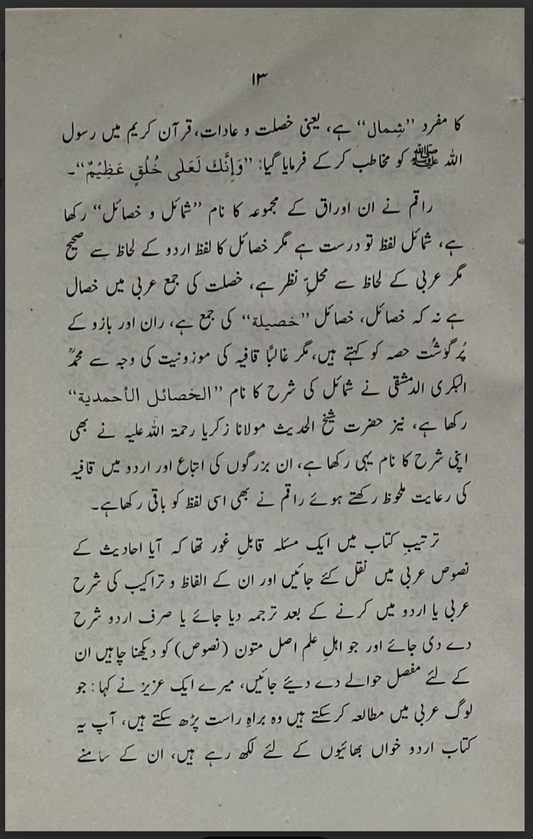 ۱۳
کا مفرد ”شِمال“ ہے، یعنی خصلت و عادات، قرآن کریم میں رسول
اللہ ﷺ کو مخاطب کرکے فرمایا گیا: ”وَإِنَّكَ لَعَلٰى خُلُقٍ عَظِيْمٌ“۔
راقم نے ان اوراق کے مجموعہ کا نام ”شمائل و خصائل“ رکھا
ہے، شمائل لفظ تو درست ہے مگر خصائل کا لفظ اردو کے لحاظ سے صحیح
مگر عربی کے لحاظ سے محلِّ نظر ہے، خصلت کی جمع عربی میں خصال
ہے نہ کہ خصائل، خصائل ”خصیلة“ کی جمع ہے، ران اور بازو کے
پُرگوشت حصہ کو کہتے ہیں، مگر غالبًا قافیہ کی موزونیت کی وجہ سے محمدؒ
البکری الدمشقی نے شمائل کی شرح کا نام ”الخصائل الأحمدية“
رکھا ہے، نیز حضرت شیخ الحدیث مولانا زکریا رحمۃ اللہ علیہ نے بھی
اپنی شرح کا نام یہی رکھا ہے، ان بزرگوں کی اتباع اور اردو میں قافیہ
کی رعایت ملحوظ رکھتے ہوئے راقم نے بھی اسی لفظ کو باقی رکھا ہے۔
ترتیبِ کتاب میں ایک مسئلہ قابلِ غور تھا کہ آیا احادیث کے
نصوص عربی میں نقل کئے جائیں اور ان کے الفاظ و تراکیب کی شرح
عربی یا اردو میں کرنے کے بعد ترجمہ دیا جائے یا صرف اردو شرح
دے دی جائے اور جو اہلِ علم اصل متون (نصوص) کو دیکھنا چاہیں ان
کے لئے مفصل حوالے دے دیئے جائیں، میرے ایک عزیز نے کہا: جو
لوگ عربی میں مطالعہ کرسکتے ہیں وہ براہِ راست پڑھ سکتے ہیں، آپ یہ
کتاب اردو خواں بھائیوں کے لئے لکھ رہے ہیں، ان کے سامنے